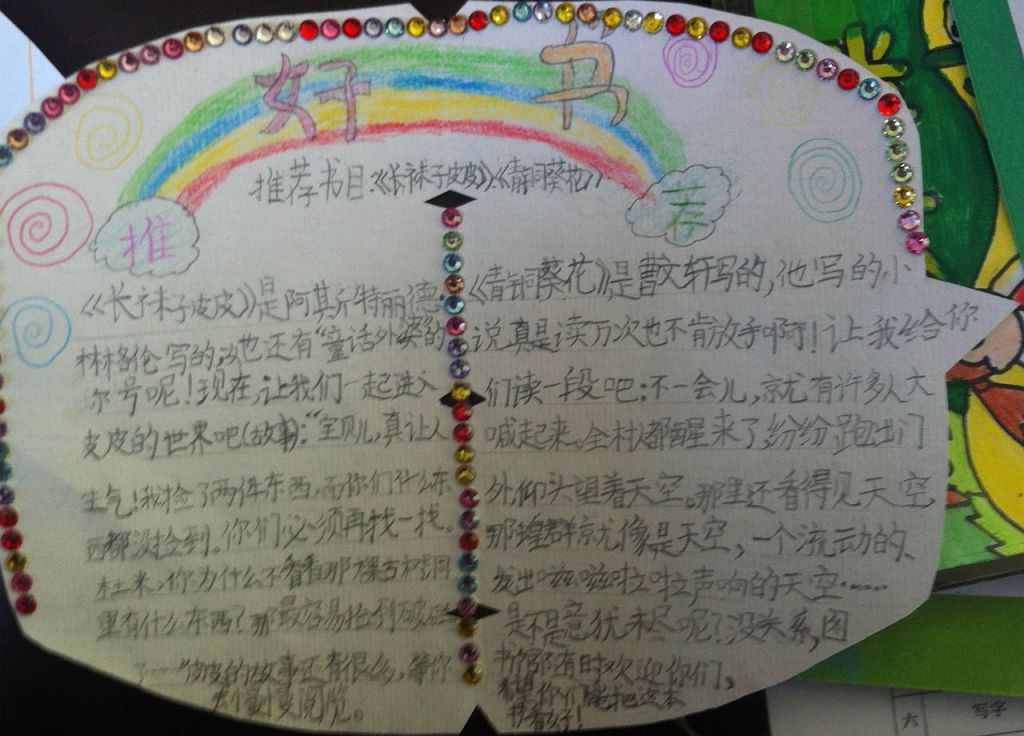 好书
推荐
推荐书目:《长袜子皮皮》、《青铜葵花》
《长袜子皮皮》是阿其斯特丽德·
林格伦写的,她还有“童话外婆”的
尔号呢!现在,让我们一起进入
皮皮的世界吧(故事):“宝贝儿,真让人
生气!我捡了两件东西,而你们什么东
西都没捡到。你们必须再找一找。
杜米,你为什么不看看那棵古树洞
里有什么东西?那最容易捡到破
了——”皮皮的故事还有很多,等你
去慢慢阅览。
《青铜葵花》是曹文轩写的,他写的小
说真是读万次也不肯放手啊!让我给你
们读一段吧:不一会儿,就有许多人大
喊起来。全村人都醒来了纷纷跑出门
外,仰头望着天空。那里还看得见天空
那蝗群就像是天空,一个流动的、
发出嗞嗞啦啦声响的天空……
是不是意犹未尽呢?没关系,图
书馆随时欢迎你们,
希望你们能把这本
书看好!
六
写字